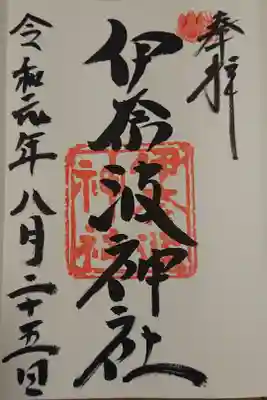 奉拝
伊奈波神社
令和元年八月二十五日